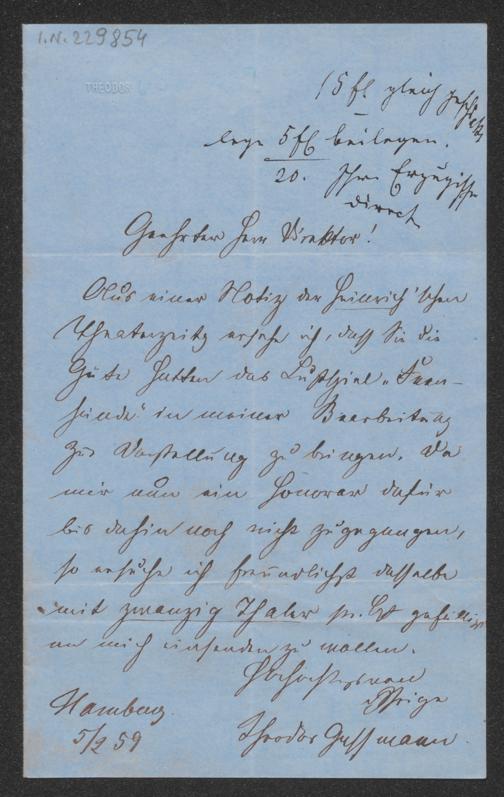 I.N. 229854
THEODOR
15 fl gleich
lege 5 fl beilegen.
20. Ihr
direct
Geehrter Herr Direktor!
Aus einer Notiz der Heinrich'schen
Theaterzeitg ersehe ich, daß Sie die
Güte hatten das Lustspiel „
in meiner Bearbeitung
zur Darstellung zu bringen. Da
mir nun ein Honorar dafür
bis dahin noch nicht zugegangen,
so ersuche ich freundlichst dasselbe
mit zwanzig Thaler pr. Ct gefälligst
an mich einsenden zu wollen.
Hochachtungsvoll
Ihrige
Hamburg
5/2 59
Theodor Gassmann.